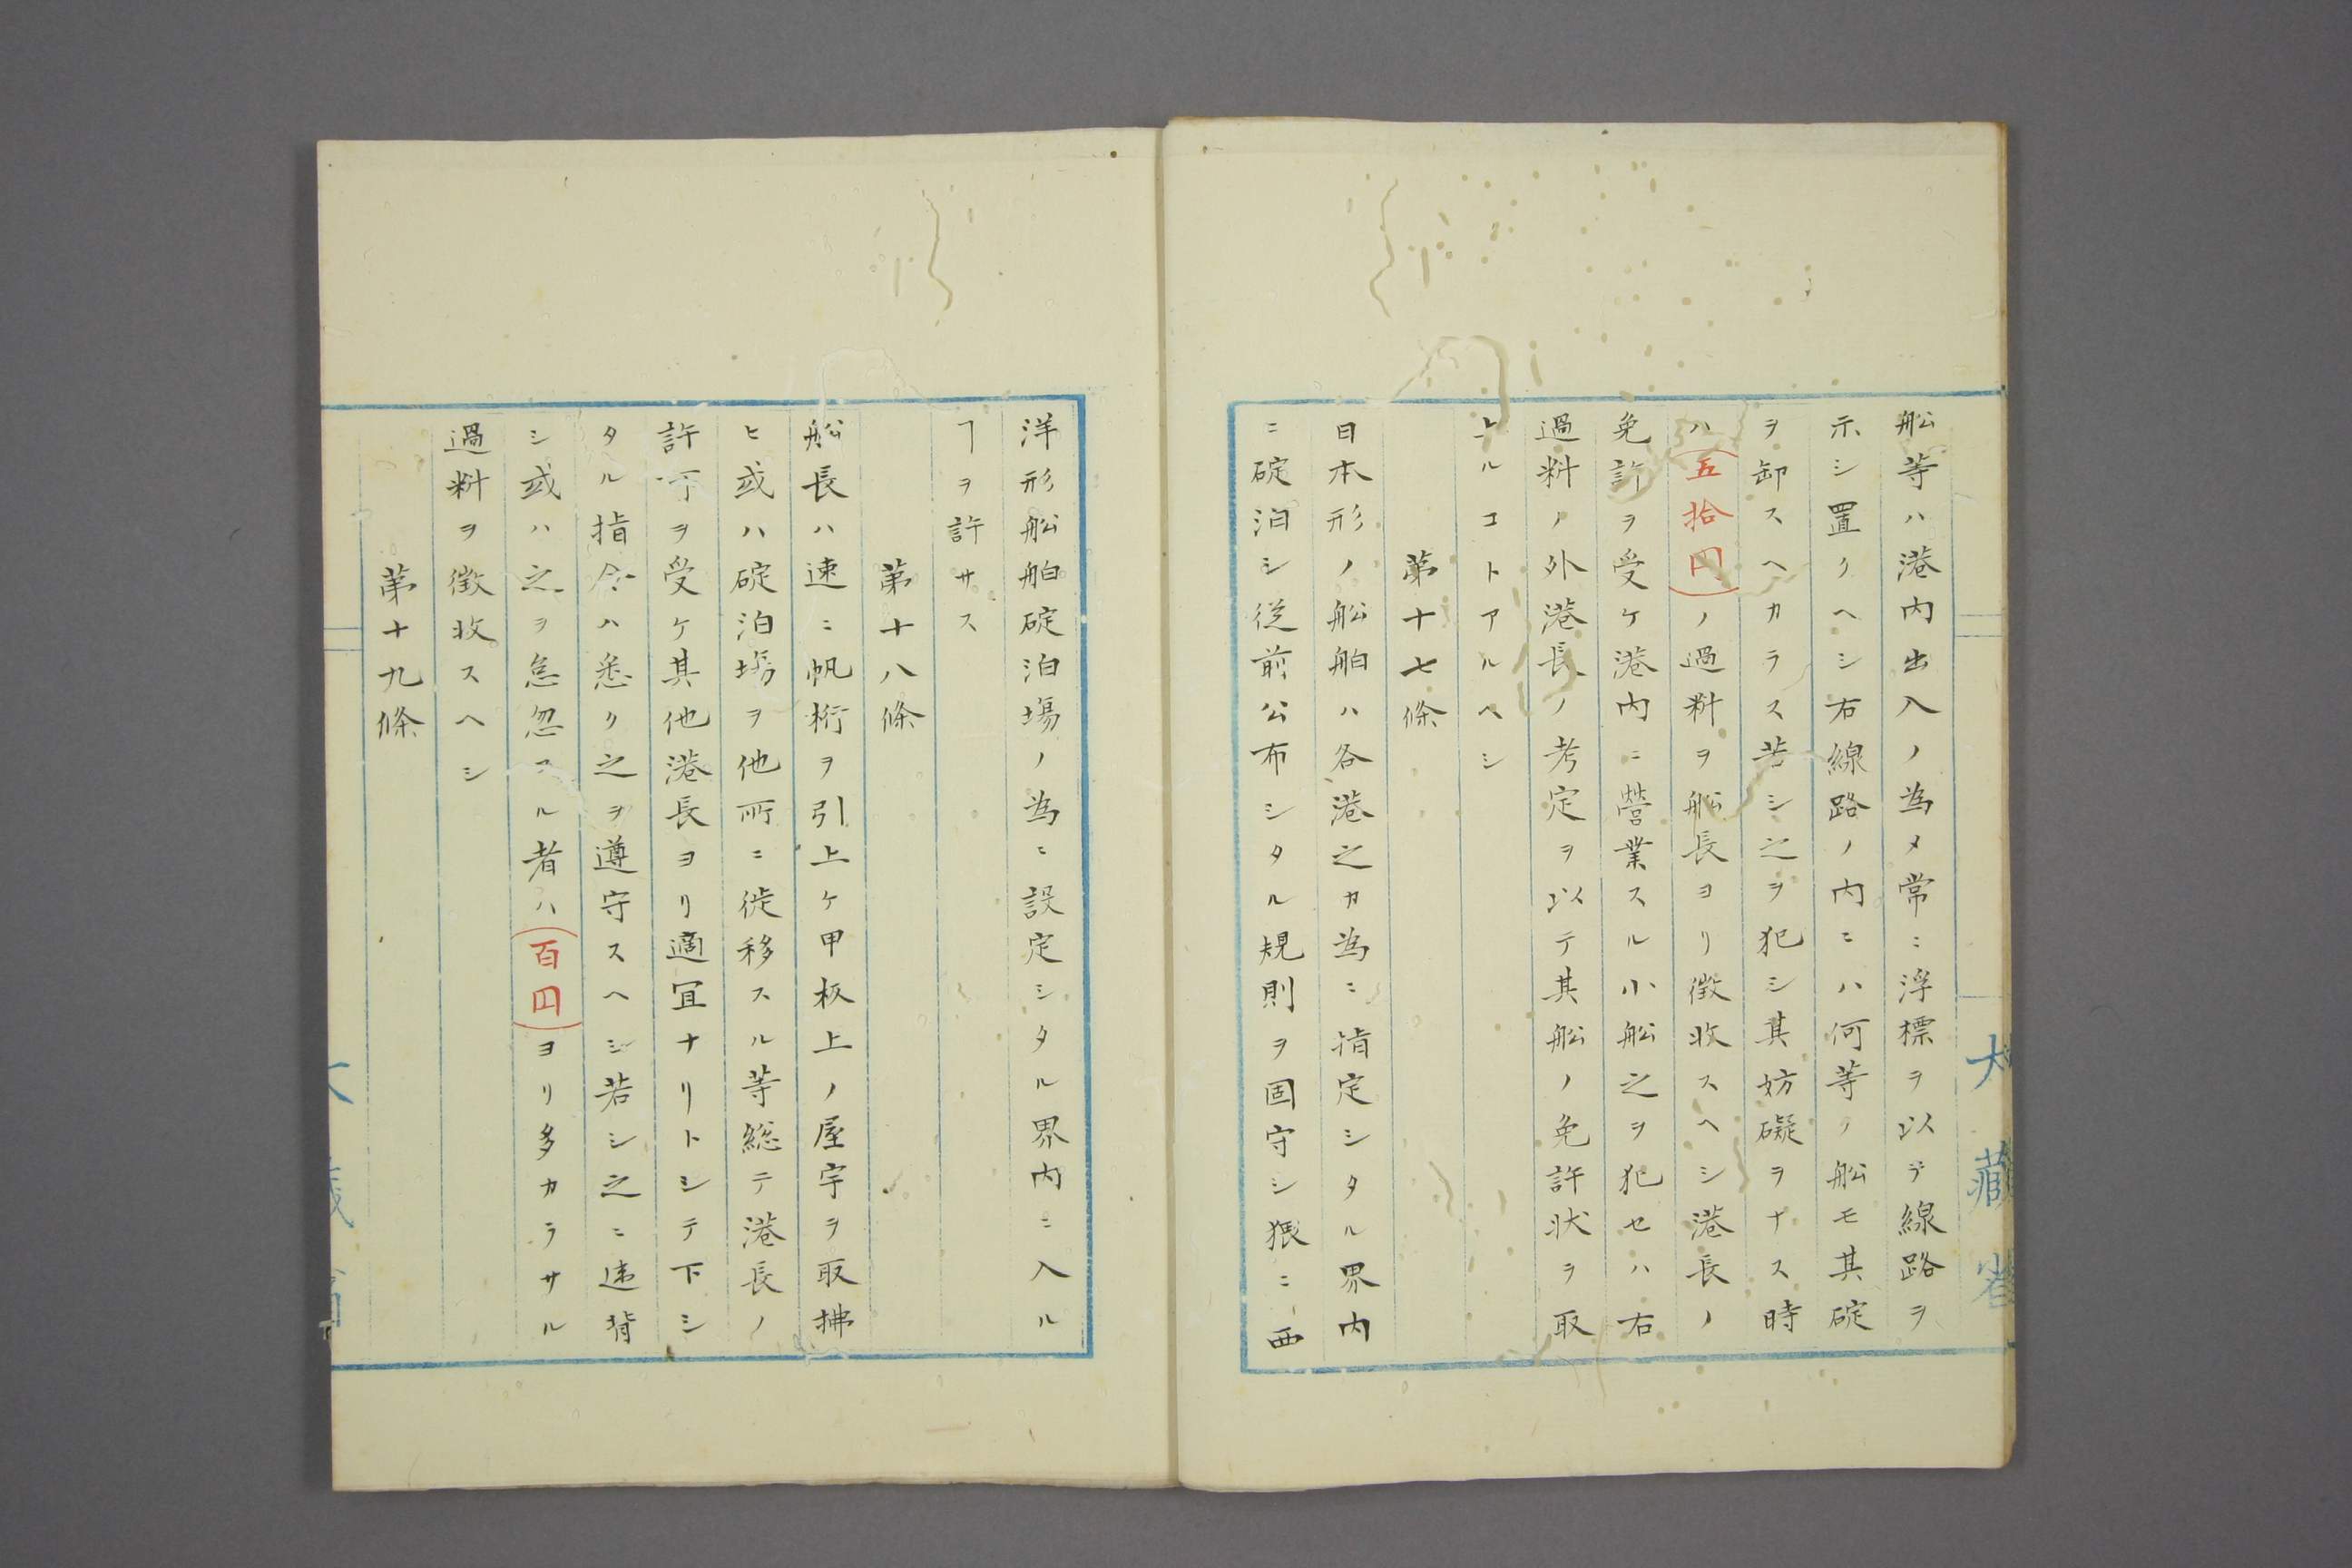 船等ハ港内出入ノ為メ常ニ浮標ヲ以テ線路ヲ
示シ置クヘシ右線路ノ内ニハ何等ノ船モ其碇
ヲ卸スヘカラス若シ之ヲ犯シ其妨礙ヲナス時
ハ(五拾円)ノ過料ヲ船長ヨリ徴收スヘシ港長ノ
免許ヲ受ケ港内ニ営業スル小船之ヲ犯セハ右
過料ノ外港長ノ考定ヲ以テ其船ノ免許状ヲ取
上ルコトアルヘシ
第十七條
日本形ノ船舶ハ各港之カ為ニ指定シタル界内
ニ碇泊シ従前公布シタル規則ヲ固守シ猥ニ西
大藏省
洋形船舶碇泊場ノ為ニ設定シタル界内ニ入ル
ヿヲ許サス
第十八條
船長ハ速ニ帆桁ヲ引上ケ甲板上ノ屋宇ヲ取拂
ヒ或ハ碇泊塲ヲ他所ニ徙移スル等総テ港長ノ
許可ヲ受ケ其他港長ヨリ適冝ナリトシテ下シ
タル指令ハ悉ク之ヲ遵守スヘシ若シ之ニ違背
シ或ハ之ヲ怠忽スル者ハ(百円)ヨリ多カラサル
過料ヲ徴收スヘシ
第十九條